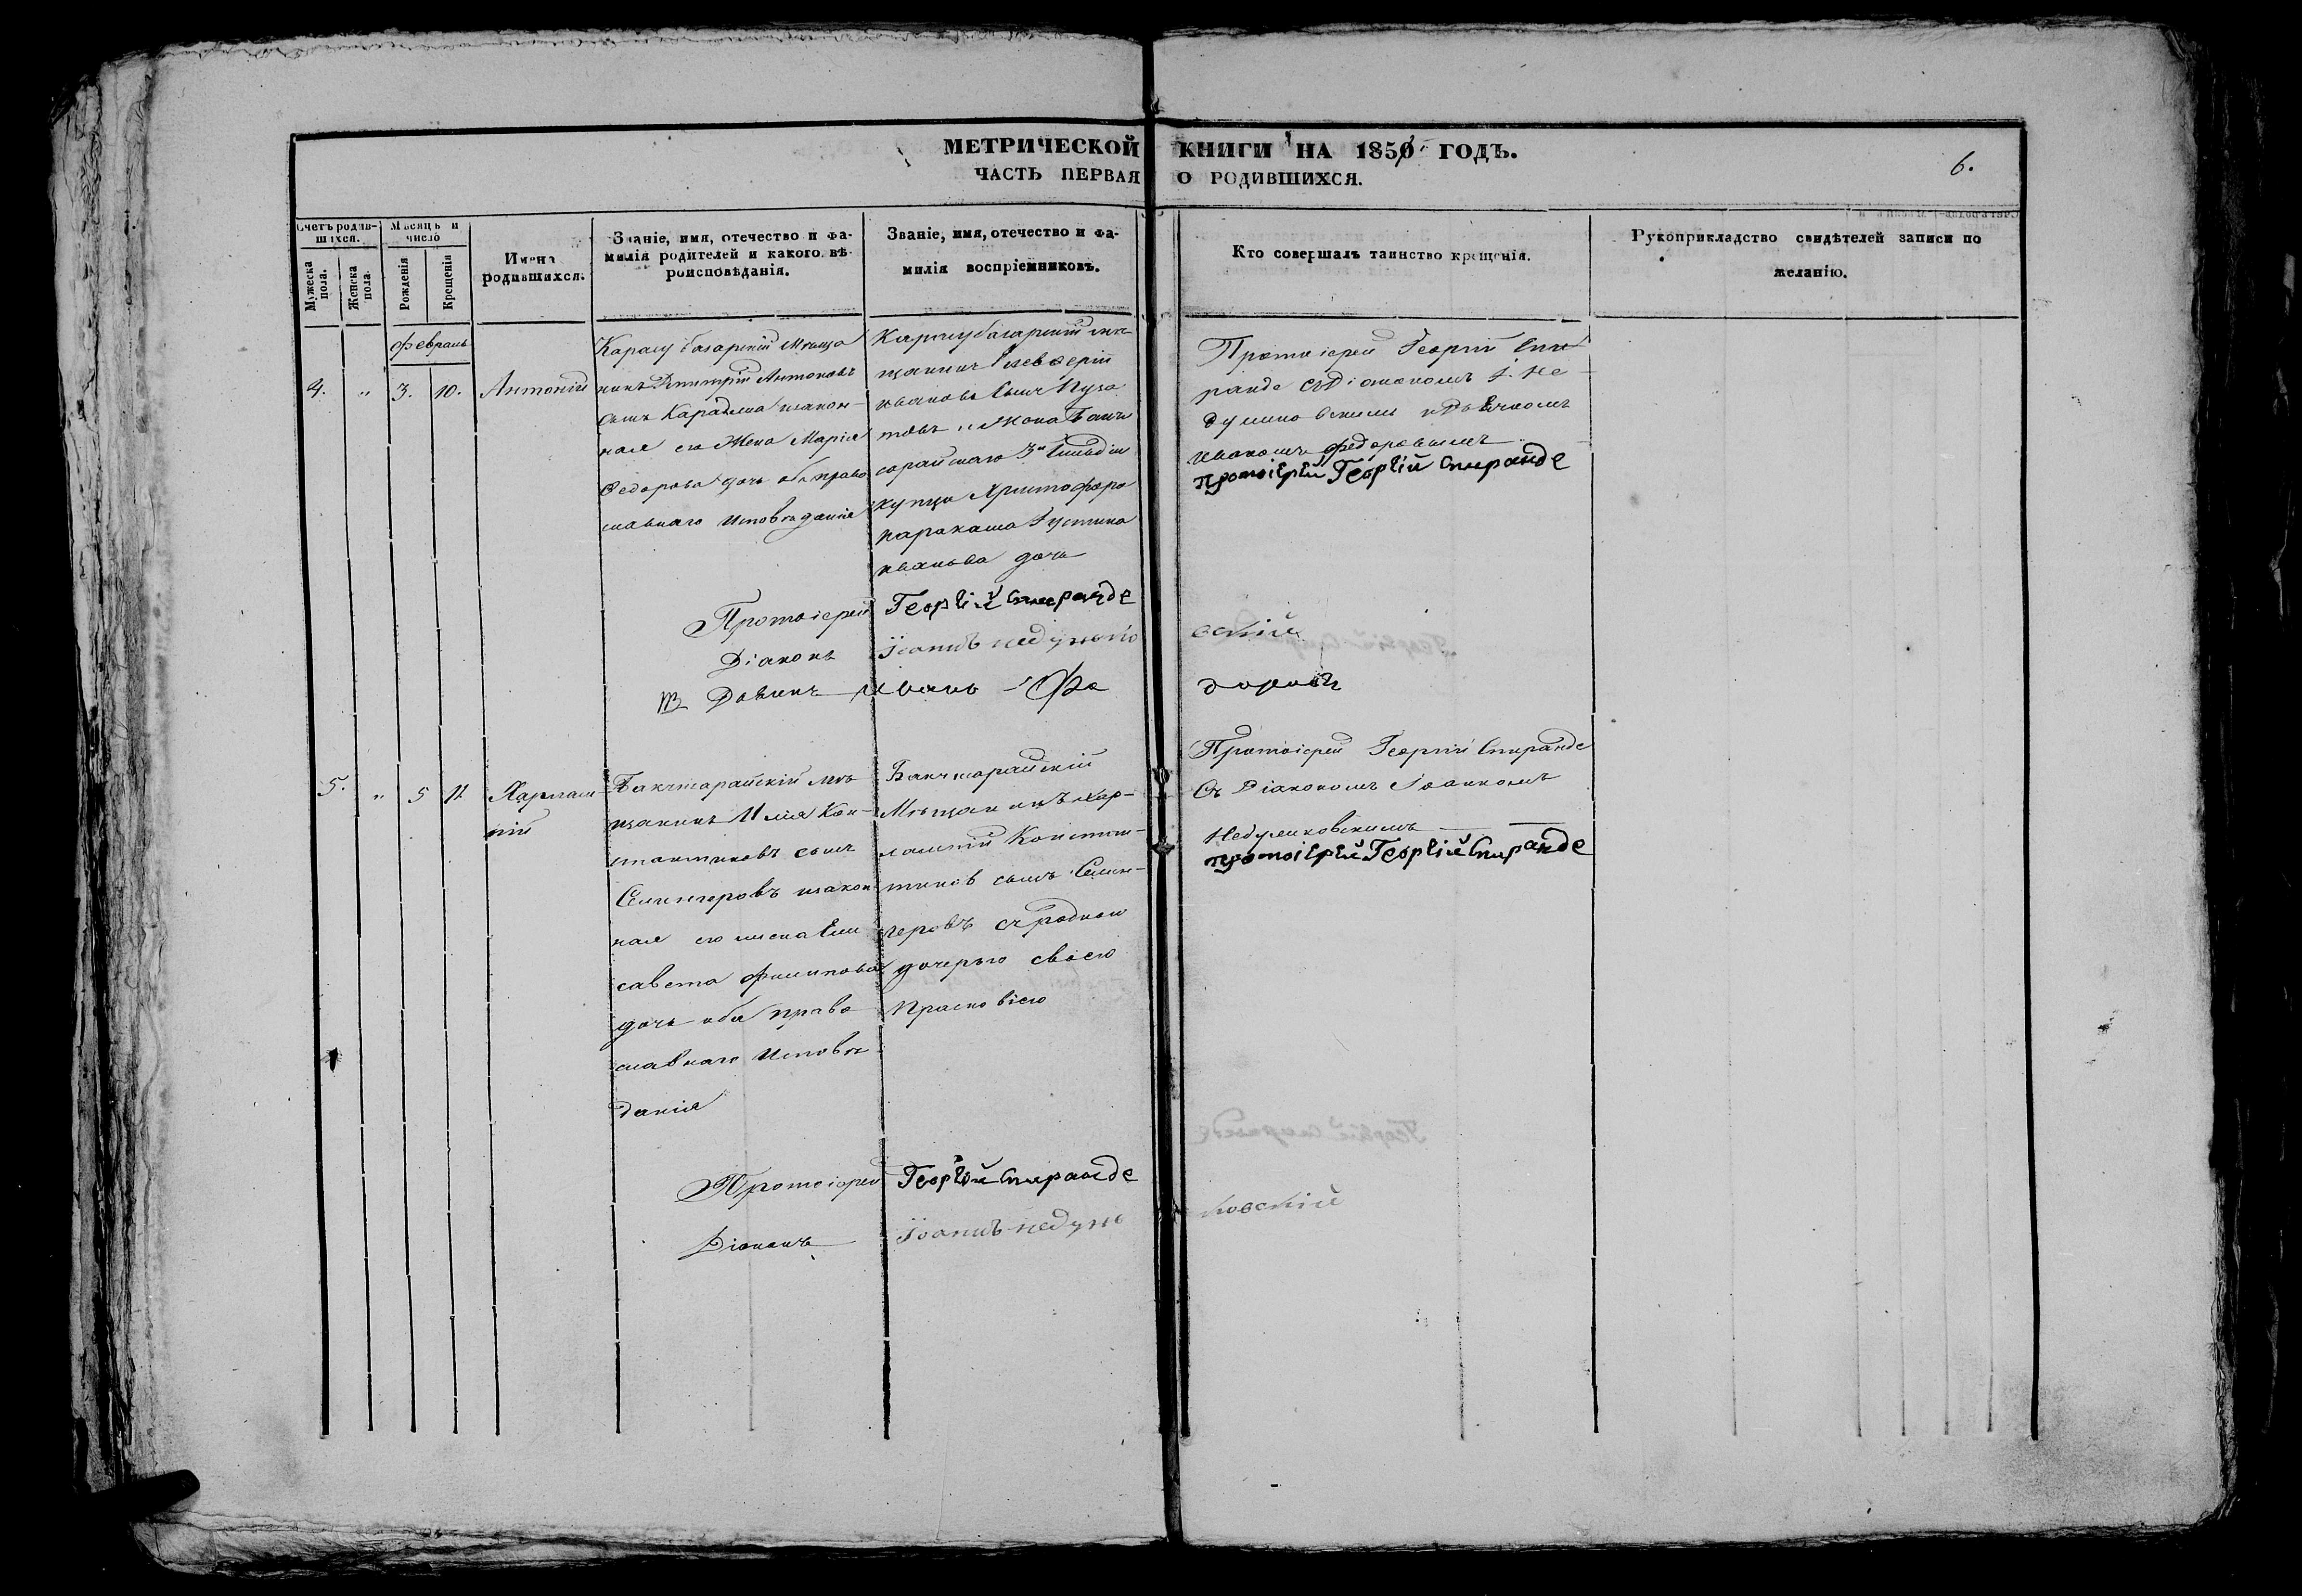 МЕТРИЧЕСКОЙ КНИГИ НА 1850 ГОДЪ.
ЧАСТЬ ПЕРВАЯ О РОДИВШИХСЯ.
6.
Счетъ родив-
шихся.
Мужеска
пола.
Женска
пола.
Мѣсяцъ и
число
Рожденія
Крещенія
Имена
родившихся.
Званіе, имя, отечество и фа-
милія родителей и какого вѣ-
роисповѣданія.
Званіе, имя, отечество и фа-
милія воспріемниковъ.
Кто совершалъ таинство крещенія.
Рукоприкладство свидѣтелей записи по
желанію.
февраль
4. " 3. 10. Антоній
Карасубазарскій Мѣща
нинъ Димитрій Антоновъ
сынъ закон-
ная его Жена Марія
Федорова дочь оба право
славнаго исповѣданія
Карасубазарскій мѣ
щанинъ Елевферій
Ивановъ сынъ
жена Бахчи
сарайскаго 3й гильдіи
купца Христофора
каракаша
иванова дочь
Протоіерей Георгій Спи
ранде съ Діакономъ І. Не-
и
Иваномъ Федоровымъ
Протоіерей Георгій Спиранде
Протоіерей Георгій Спиранде
Діаконъ Іоаннъ недунко вскій
Иванъ Фе доровъ
5. " 5 11 Харлам-
пій
Бахчисарайскій мѣ
щанинъ Илія Кон-
стантиновъ сынъ
закон
ная его жена Ели
савета Филипова
дочь оба право
славнаго исповѣ
данія
Бахчисарайскій
Мѣщанинъ Хар-
лампій Констан-
тинов сынъ
съ родною
дочерью своею
Прасковіею
Протоіерей Георгій Спиранде
Съ Діакономъ Іоанномъ
Недунковскимъ
Протоіерей Георгій Спиранде
Протоіерей Георгій Спиранде
Діаконъ Іоаннъ недун ковскій